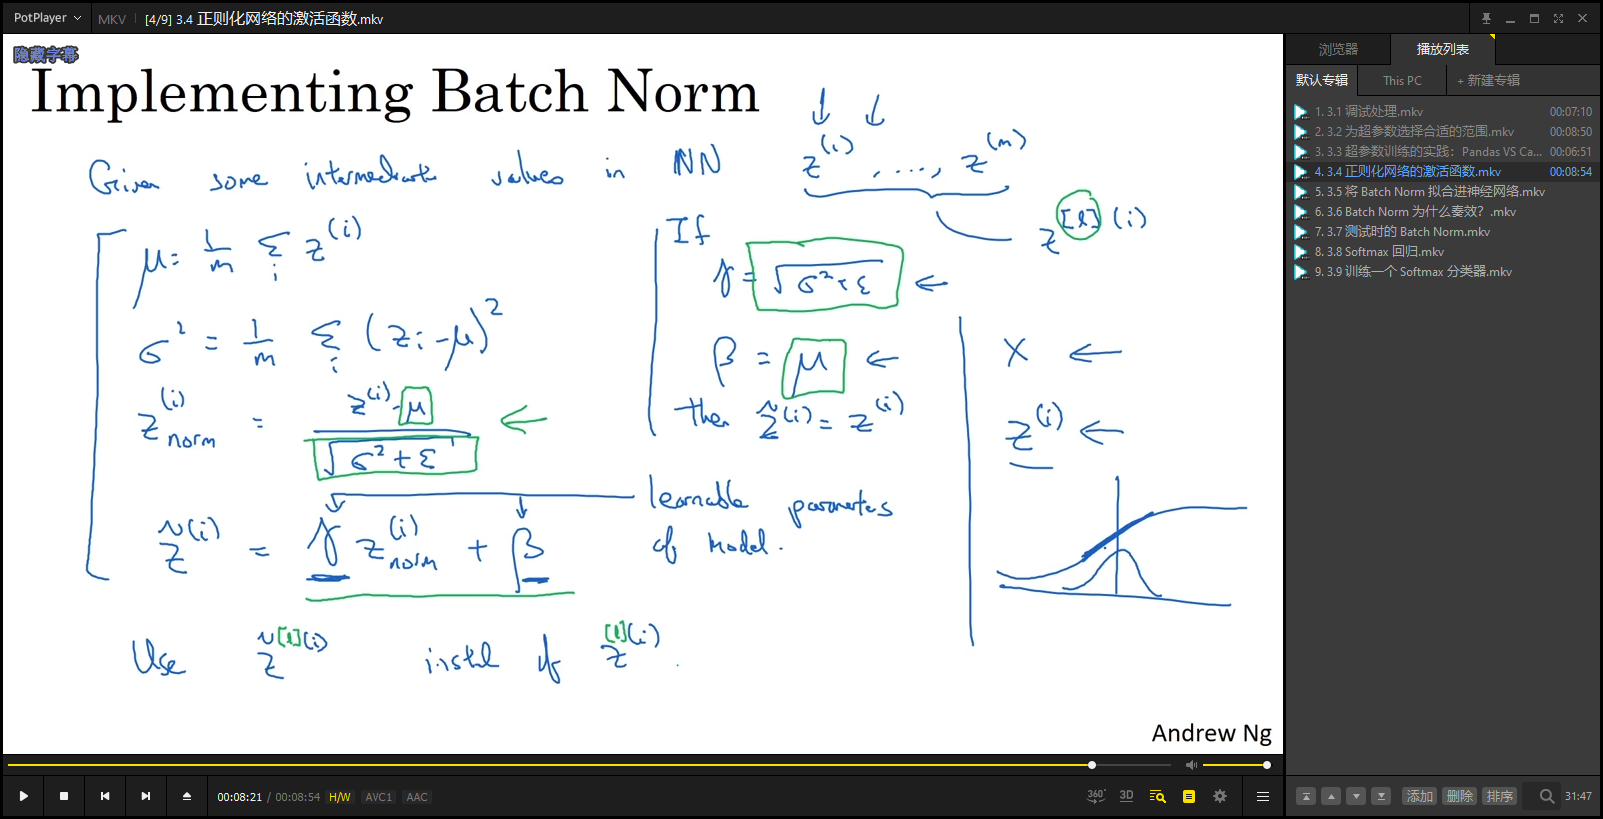 PotPlayer MKV [4/9] 3.4 正则化网络的激活函数.mkv
隐藏字幕
Implementing Batch Norm
Given some intermediate values in NN z^(i) , ...., z^(m)
z^[l](i)
μ = 1/m Σ_i z^(i)
σ² = 1/m Σ_i (z_i - μ)²
z^(i)_norm = (z^(i) - μ) / √(σ² + ε)
z̃^(i) = γ z^(i)_norm + β
learnable parameters
of model.
If
γ = √(σ² + ε) ←
β = μ ←
then z̃^(i) = z^(i)
X ←
z^(i) ←
Use z̃^[l](i) instead of z^[l](i).
Andrew Ng
00:08:21 / 00:08:54 H/W AVC1 AAC
360° 3D
浏览器 播放列表
默认专辑 This PC + 新建专辑
1. 3.1 调试处理.mkv 00:07:10
2. 3.2 为超参数选择合适的范围.mkv 00:08:50
3. 3.3 超参数训练的实践：Pandas VS Ca... 00:06:51
4. 3.4 正则化网络的激活函数.mkv 00:08:54
5. 3.5 将 Batch Norm 拟合进神经网络.mkv
6. 3.6 Batch Norm 为什么奏效？.mkv
7. 3.7 测试时的 Batch Norm.mkv
8. 3.8 Softmax 回归.mkv
9. 3.9 训练一个 Softmax 分类器.mkv
添加 删除 排序 31:47